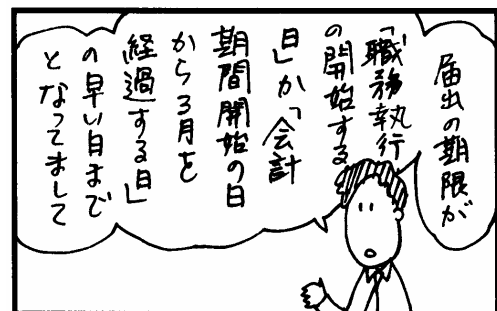 届出の期限が
「職務執行
の開始する
日」か「会計
期間開始の日
から3月を
経過する日」
の早い日まで
となってまして